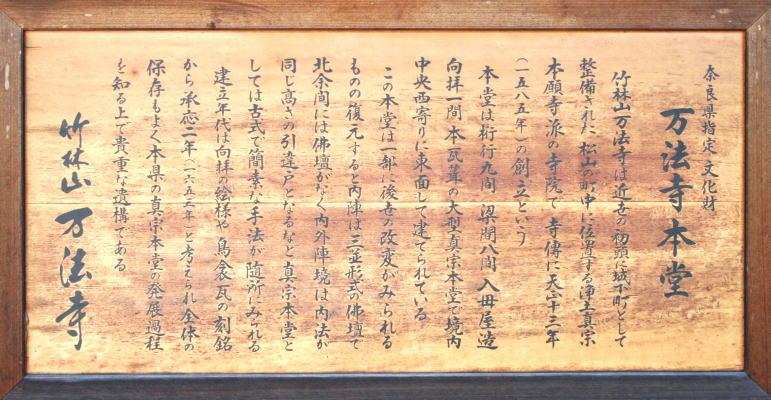 奈良県指定文化財
万法寺本堂
竹林山万法寺は近世の初頭に城下町として
整備された松山の町中に位置する浄土真宗
本願寺派の寺院で寺傳に天正十三年
(一五八五年)の創立という
本堂は桁行九間梁間八間入母屋造
向拝一間本瓦葺の大型真宗本堂で境内
中央西寄りに東面して建てられている
この本堂は一部に後世の改変がみられる
ものの復元すると内陣は三並形式の佛壇で
北余間には佛壇がなく内外陣境は内法が
同じ高さの引違戸となるなど真宗本堂と
しては古式で簡素な手法が随所にみられる
建立年代は向拝の絵様や鳥衾瓦の刻銘
から承応二年(一六五三年)と考えられ全体の
保存もよく本県の真宗本堂の発展過程
を知る上で貴重な遺構である
竹林山万法寺